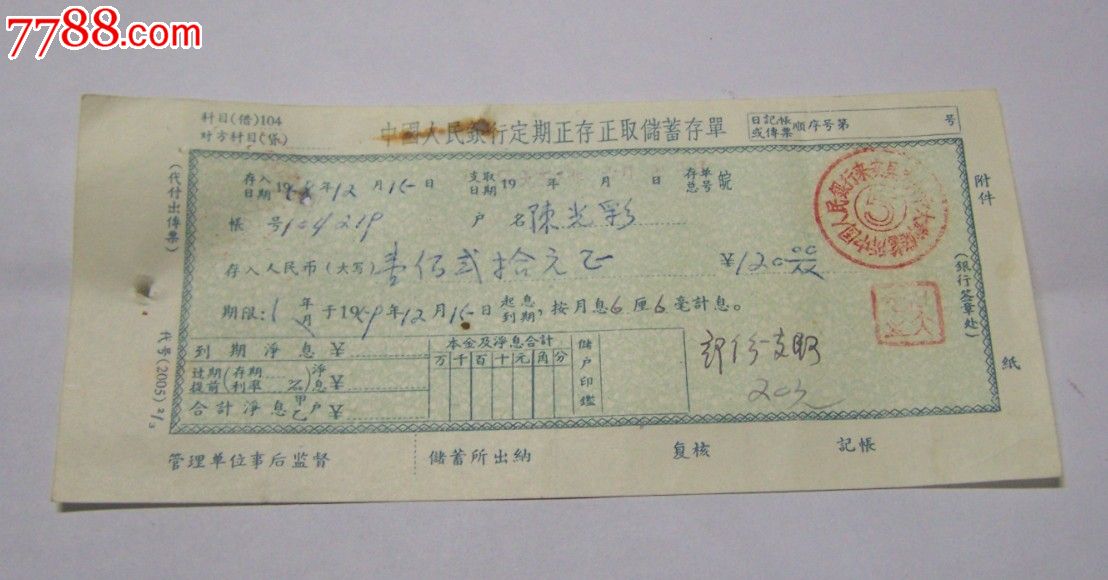 7788.com
中国收藏热线
科目(借)104
对方科目(贷)
中國人民銀行定期正存正取儲蓄存單
日記帳或傳票 順序号第 号
(代付出傳票)
存入日期 19 年12月15日 支取日期 19 年 月 日 存单总号 皖
帳 号 104219 户 名 陳光彩
存入人民币(大写) 壹佰弍拾元正 ¥120
期限: 1 年月 于1969年12月15日 起息到期, 按月息6厘6毫計息。
到期淨息 ¥
过期提前(存期利率 %)淨息 ¥
合計淨息 甲乙户 ¥
本金及淨息合計
万千百十元角分
儲户印鑑
部份支取
20元
附件
(銀行签章处)
纸
代号(2005)
管理单位事后监督 儲蓄所出納 复核 記帳